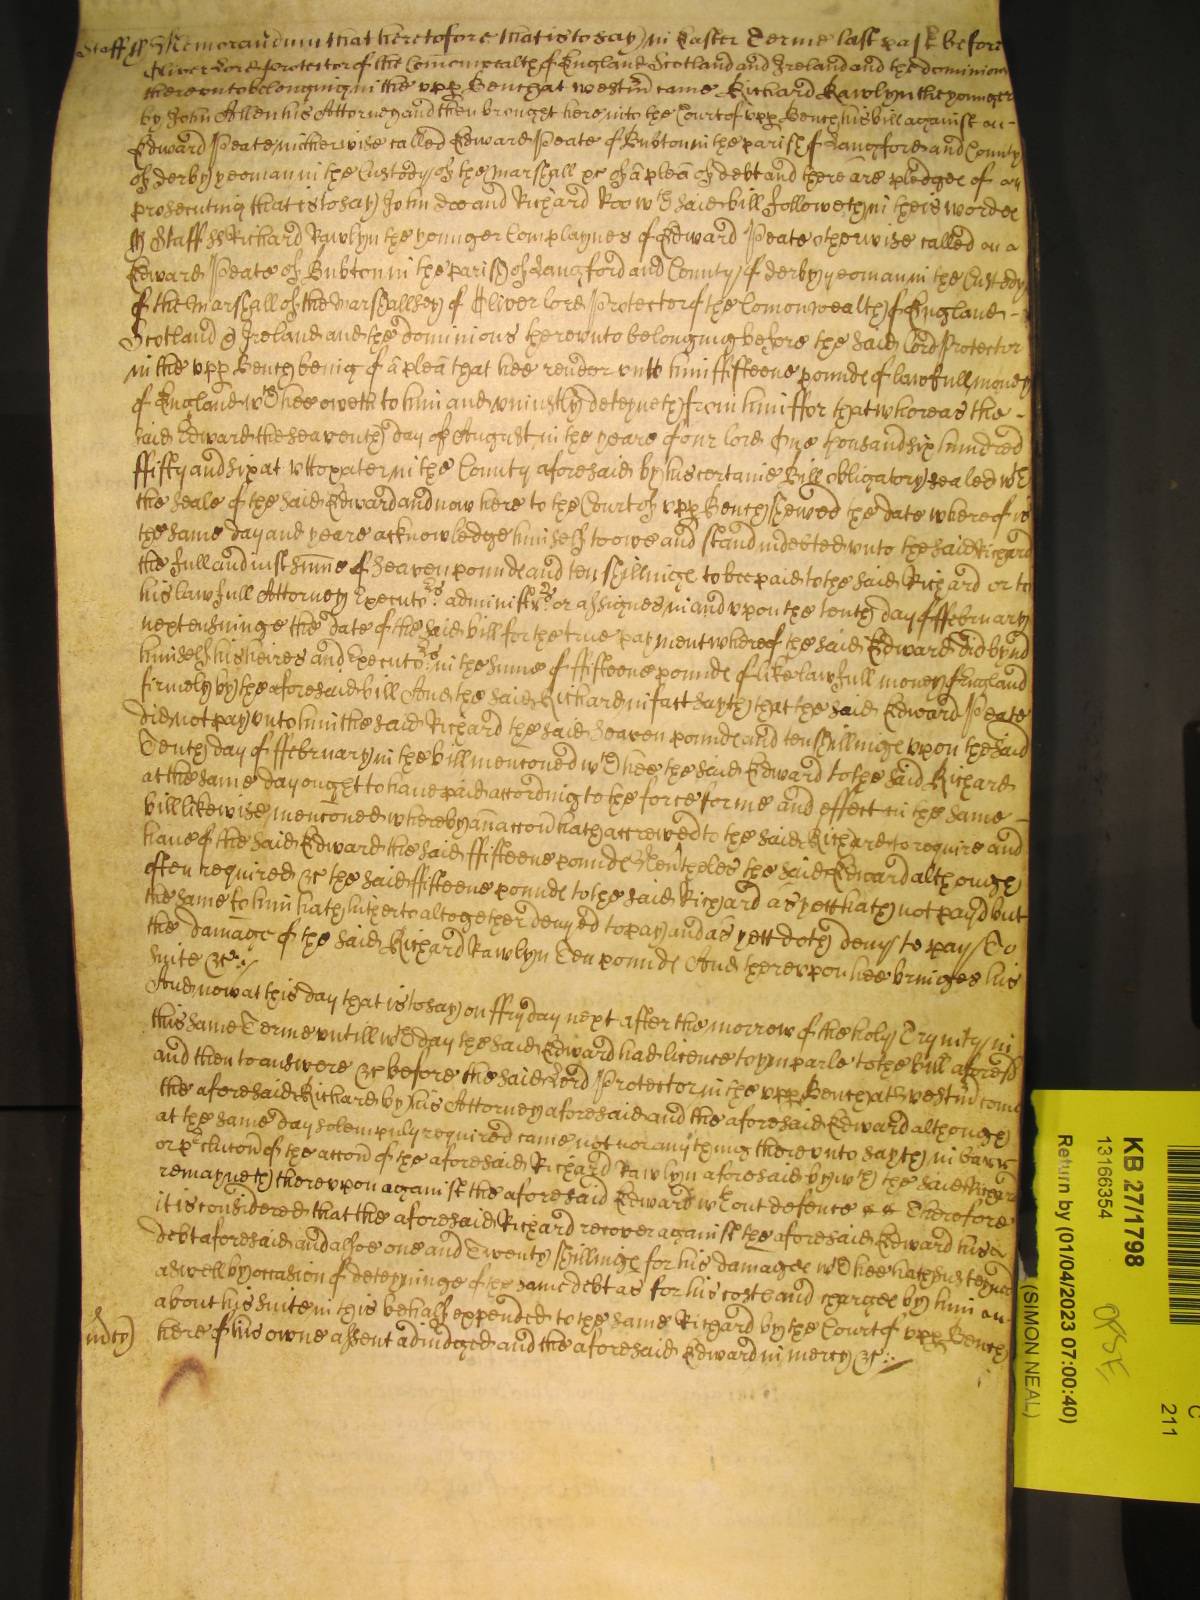 Staff ss Memorandum that heretofore that is to say in Easter Terme last past before
Oliver Lord Protector of the Comonwealth of England Scotland and Ireland and the dominions
thereunto belonging in the upp Bench at Westm̃ came Richard Rawlyn the younger
by John Allen his Attorney and then brought here into the Court of upp Bench his bill against on-
Edward Peate otherwise called Edward Peate of Bubton in the parish of Langford and County
of derby yeoman in the Custody of the Marshall &c of a plea of debt and there are pledges of
prosecuting that is to say John doe and Richard Roo wch said bill followeth in theis wordes
ss Staff ss Richard Rawlyn the younger Complaynes of Edward Peate otherwise called
Edward Peate of Bubton in the parish of Langford and County of derby yeoman in the Custody
of the Marshall of the Marshallsey of Oliver lord Protector of the Comonwealth of England -
Scotland & Ireland and the dominions thereunto belonging before the said Lord Protector
in the upp Bench being of a plea that hee render unto him fifteene pounds of lawfull money
of England wch hee oweth to him and uniustly deteyneth from him ffor that whereas the -
said Edward the seaventh day of August in the yeare of our lord One thousand six hundred
ffifty and six at Uttoxater in the County aforesaid by his certaine Bill obligatory sealed wth
the seale of the said Edward and now here to the Court of upp Bench shewed the date whereof is
the same day and yeare acknowledge himself to owe and stand indebted unto the said Richard
the full and iust summe of seaven pounds and ten shillings to bee paid to the said Richard or to
his lawfull Attorney Executors administrs or assignes in and upon the tenth day of ffebruary
next ensuinge the date of the said bill for the true payment whereof the said Edward did bynd
himself his heires and Executors in the sume of ffifteene pounds of like lawfull money of England
firmely by the aforesaid bill And the said Richard in fact sayth that the said Edward Peate
did not pay unto him the said Richard the said seaven pounds and ten shillings upon the said
Tenth day of ffebruary in the bill menconed wch hee the said Edward to the said Richard
at the same day ought to have paid according to the force forme and effect in the same -
bill likewise menconed whereby an accon hath accrewed to the said Richard to require and
have of the said Edward the said ffifteene pounds Neutheles the said Edward although
often required &c the said ffifteene pounds to the said Richard as yett hath not payd but
the same to him hath hitherto altogether denyed to pay and as yett doth deny to pay To
the damage of the said Richard Rawlyn Ten pounds And thereupon hee bringes his
suite &c
And now at this day that is to say on ffryday next after the morrow of the holy Trynity in
this same Terme untill wch day the said Edward had licence to ymparle to the bill aforesd
and then to answere &c before the said Lord Protector in the upp Bench at Westm̃ come
the aforesaid Richard by his Attorney aforesaid and the aforesaid Edward although
at the same day solempnly required came not nor any thing thereunto sayth in barr
or pcluton of the accon of the aforesaid Richard Rawlyn aforesaid by wch the said Richard
remayneth thereupon against the aforesaid Edward wthout defence Therefore
it is considered that the aforesaid Richard recover against the aforesaid Edward his
debt aforesaid and alsoe one and Twenty shillings for his damages wch hee hath susteyned
aswell by occasion of deteyninge of the same debt as for his costs and charges by him
about his suite in this behalf expended to the same Richard by the Court of upp Bench
here of his owne assent adiudged and the aforesaid Edward in mercy &c
mcy
KB 27/1798
13166354
Return by (01/04/2023 07:00:40)
(SIMON NEAL)
C
211